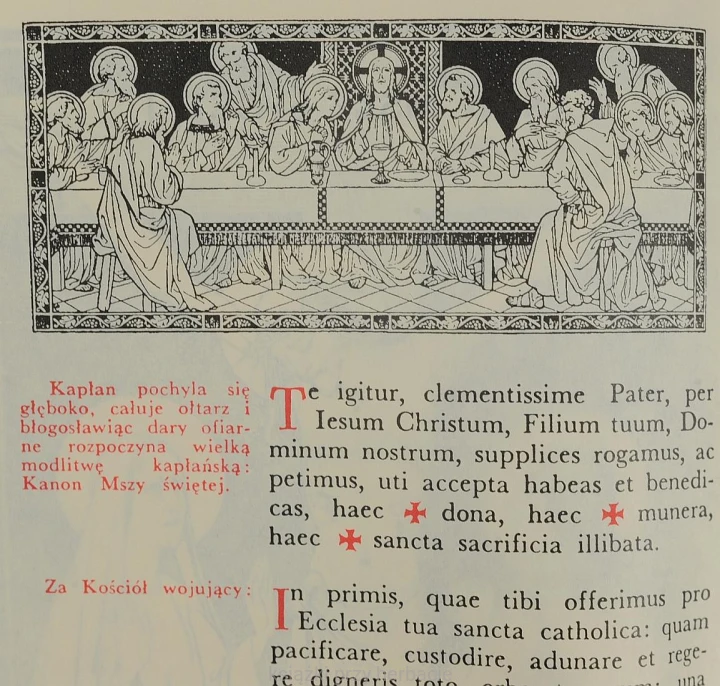 Kapłan pochyla się
głęboko, całuje ołtarz i
błogosławiąc dary ofiar-
ne rozpoczyna wielką
modlitwę kapłańską:
Kanon Mszy świętej.
Te igitur, clementissime Pater, per
Iesum Christum, Filium tuum, Do-
minum nostrum, supplices rogamus, ac
petimus, uti accepta habeas et benedi-
cas, haec ✠ dona, haec ✠ munera,
haec ✠ sancta sacrificia illibata.
Za Kościół wojujący:
In primis, quae tibi offerimus pro
Ecclesia tua sancta catholica: quam
pacificare, custodire, adunare et rege-
re digneris toto una